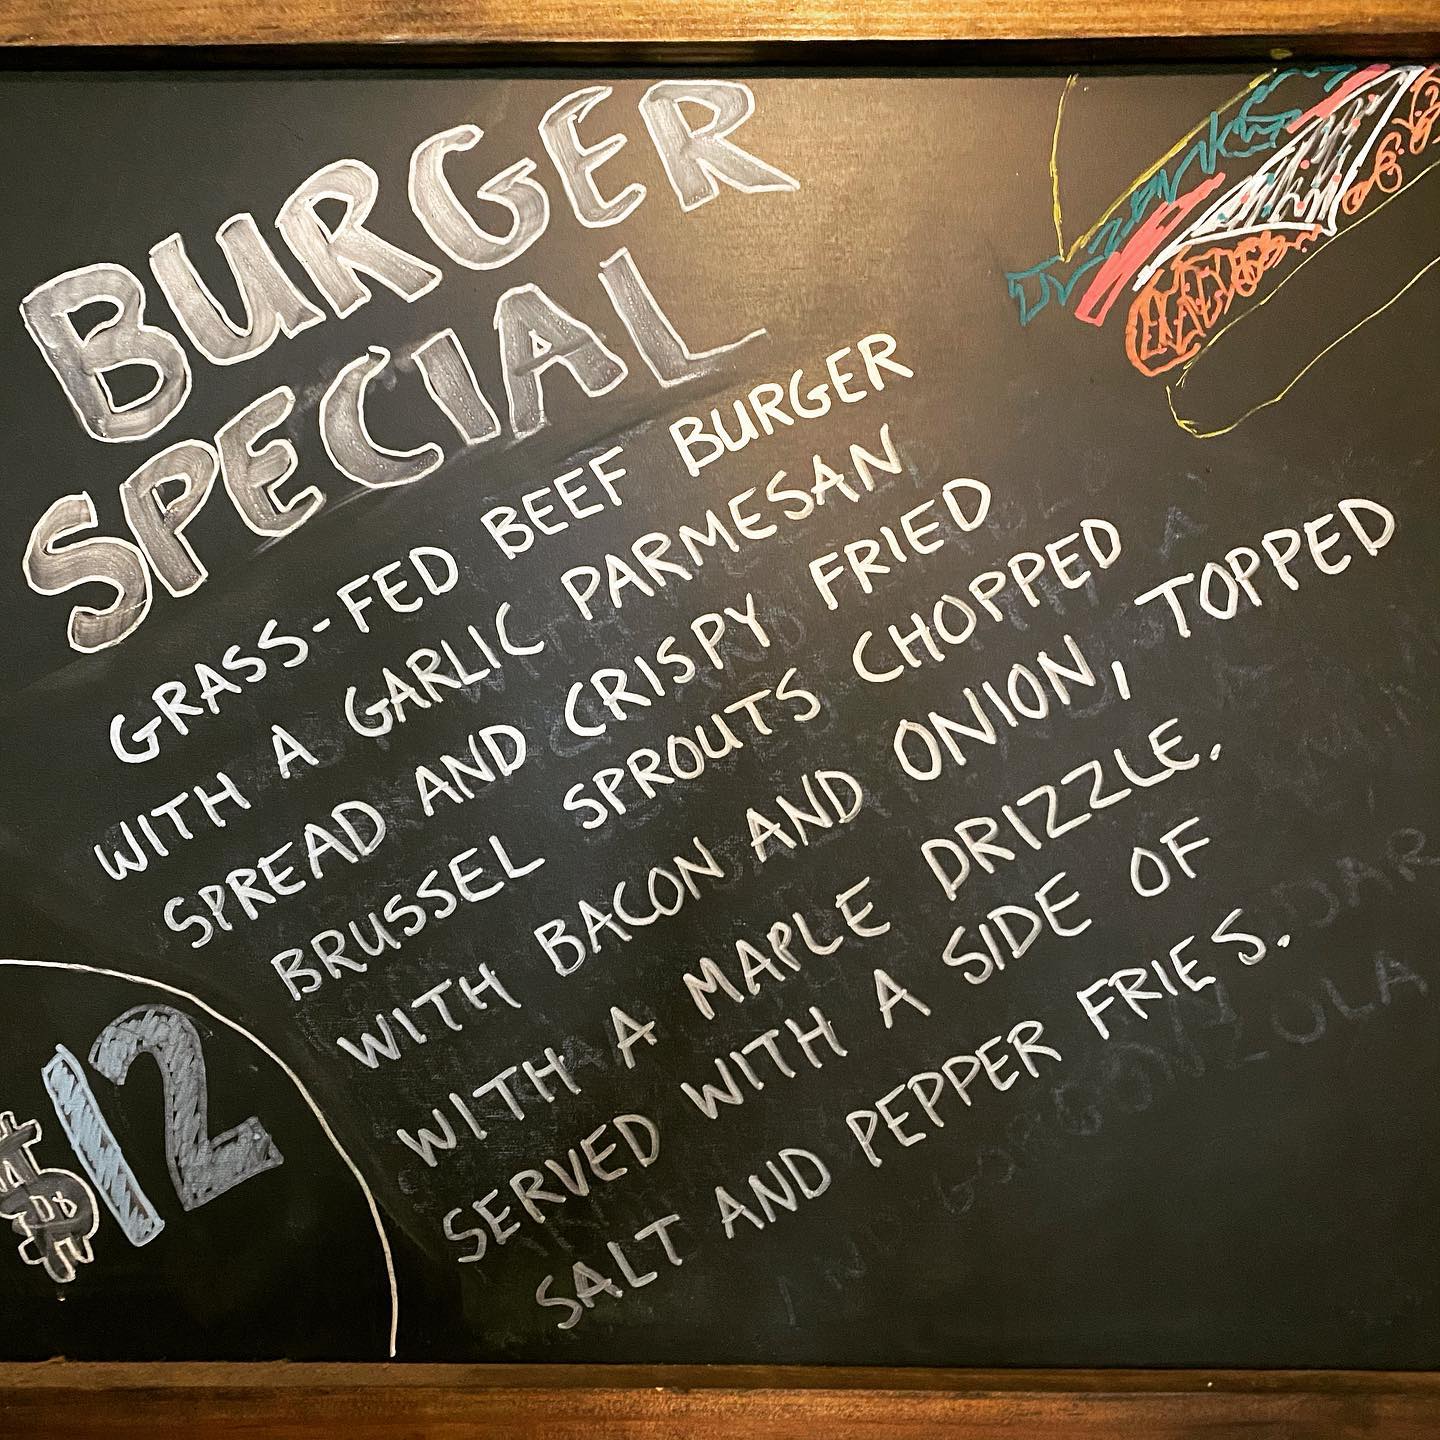 BURGER
SPECIAL
GRASS-FED BEEF BURGER
WITH A GARLIC PARMESAN
SPREAD AND CRISPY FRIED
BRUSSEL SPROUTS CHOPPED
WITH BACON AND ONION, TOPPED
WITH A MAPLE DRIZZLE.
SERVED WITH A SIDE OF
SALT AND PEPPER FRIES.
$12